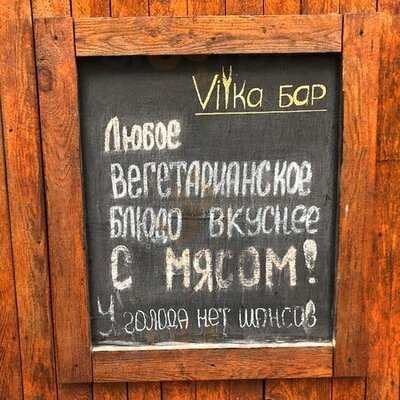 Vilka БАР
Любое
ВЕГЕТАРИАНСКОЕ
БЛЮДО ВКУСНЕЕ
С МЯСОМ!
У голода нет шансов